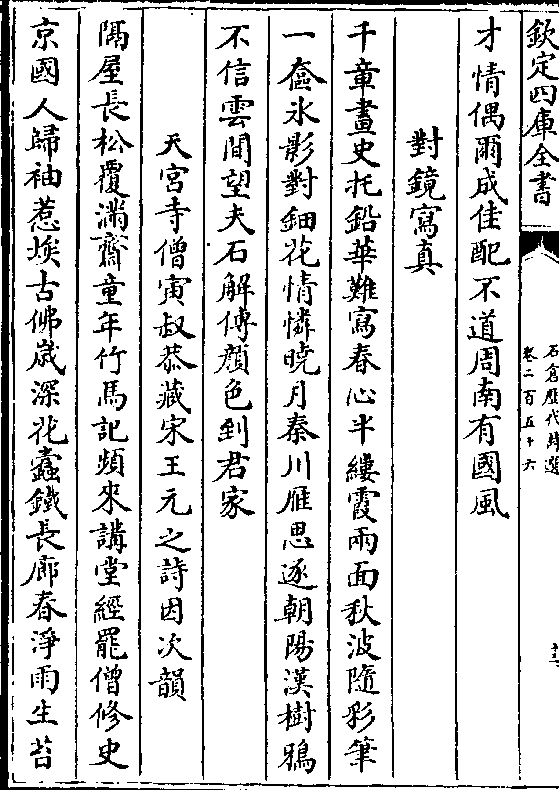 欽定四庫全書
石倉歷代詩選
卷二百五十六
才情偶爾成佳配不道周南有國風
對鏡寫真
千章畫史托鉛華難寫春心半縷霞兩面秋波隨彩筆
一奩冰影對鈿花情憐曉月秦川雁思逐朝陽漢樹鴉
不信雲間望夫石解傳顔色到君家
天宮寺僧寅叔恭藏宋王元之詩因次韻
隔屋長松覆滿齋童年竹馬記頻來講堂經罷僧修史
京國人歸袖惹埃古佛嵗深花蠧鐵長廊春淨雨生苔